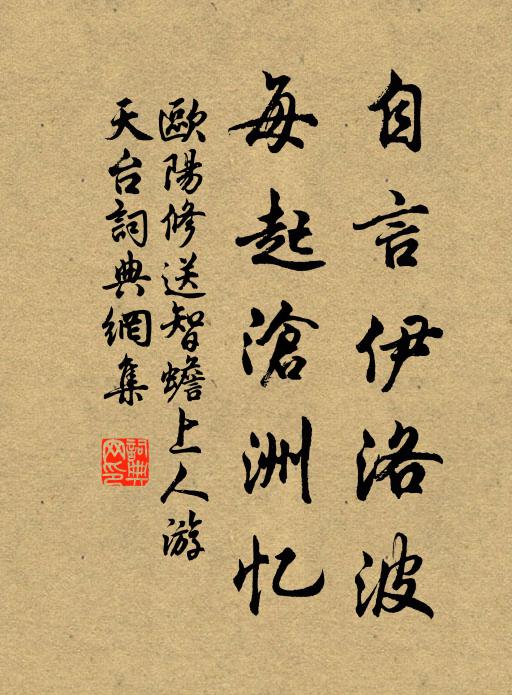 自言伊洛波
每起滄洲忆
歐陽修送智蟾上人游
天台詞典網集
詞典網印